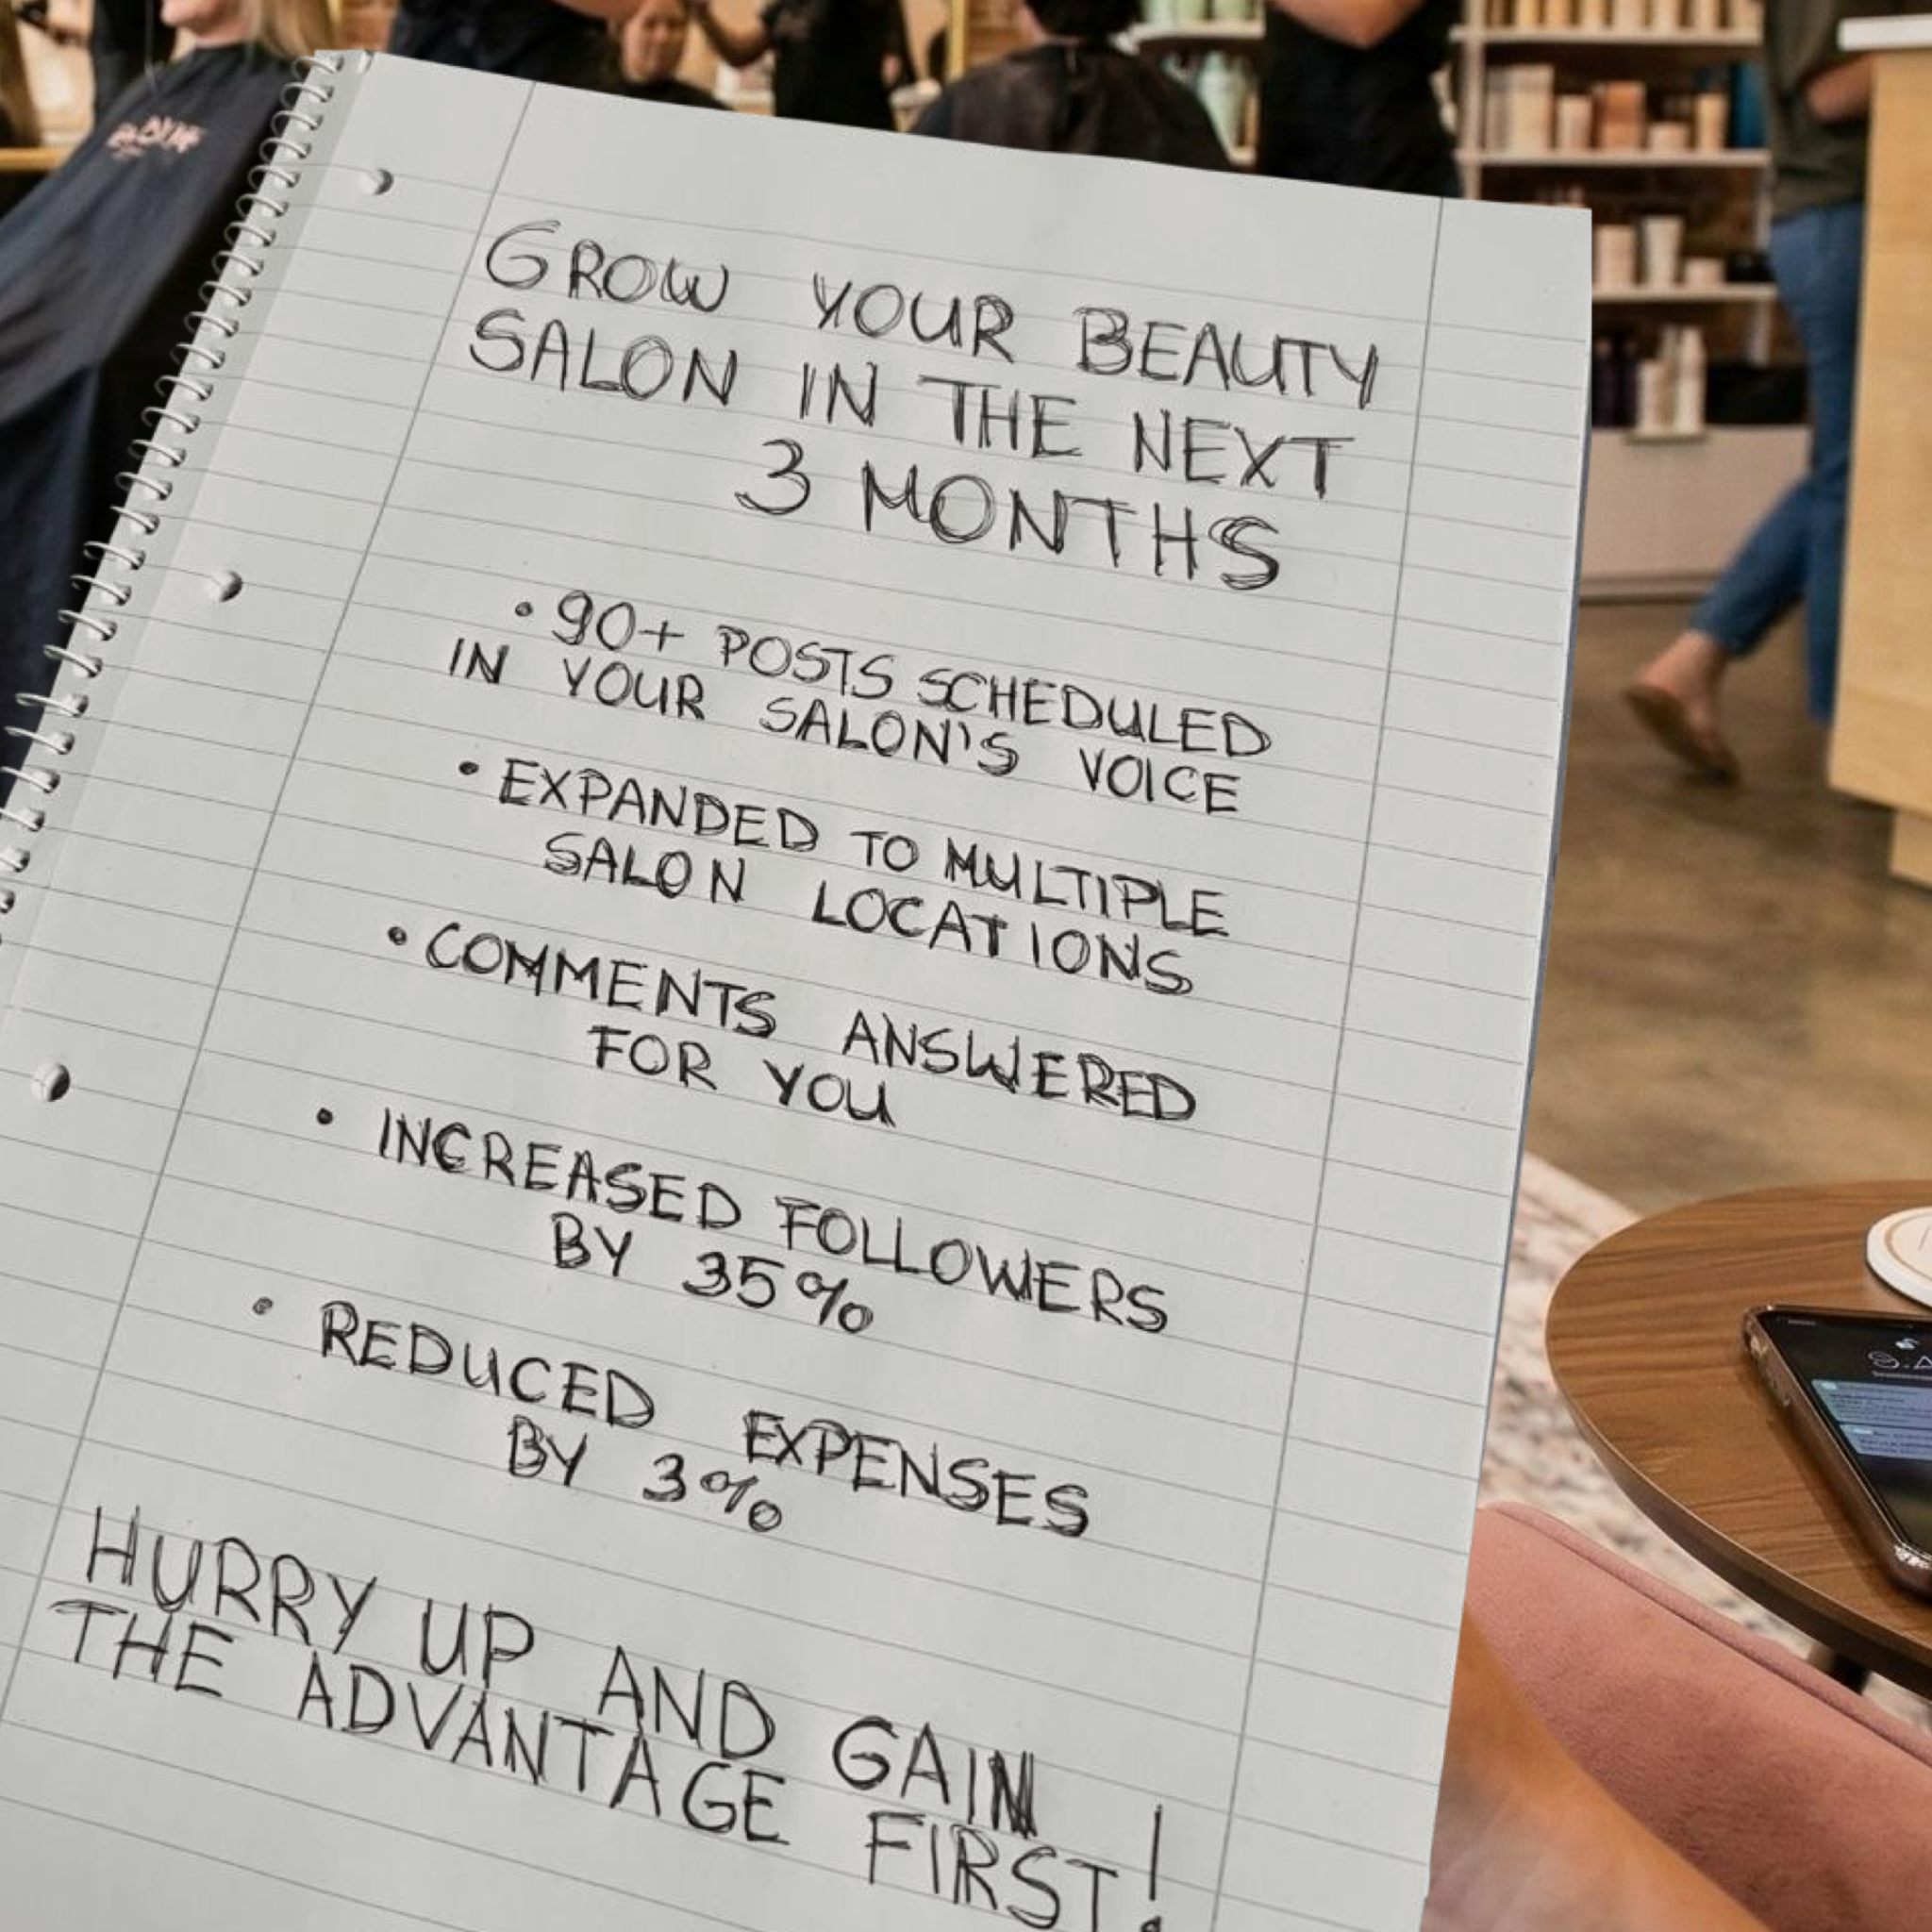 GROW YOUR BEAUTY
SALON IN THE NEXT
3 MONTHS
• 90+ POSTS SCHEDULED
IN YOUR SALON'S VOICE
• EXPANDED TO MULTIPLE
SALON LOCATIONS
• COMMENTS ANSWERED
FOR YOU
• INCREASED FOLLOWERS
BY 35%
• REDUCED EXPENSES
BY 3%
HURRY UP AND GAIN
THE ADVANTAGE FIRST!